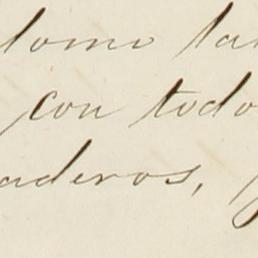 como tan
con todo
aderos,